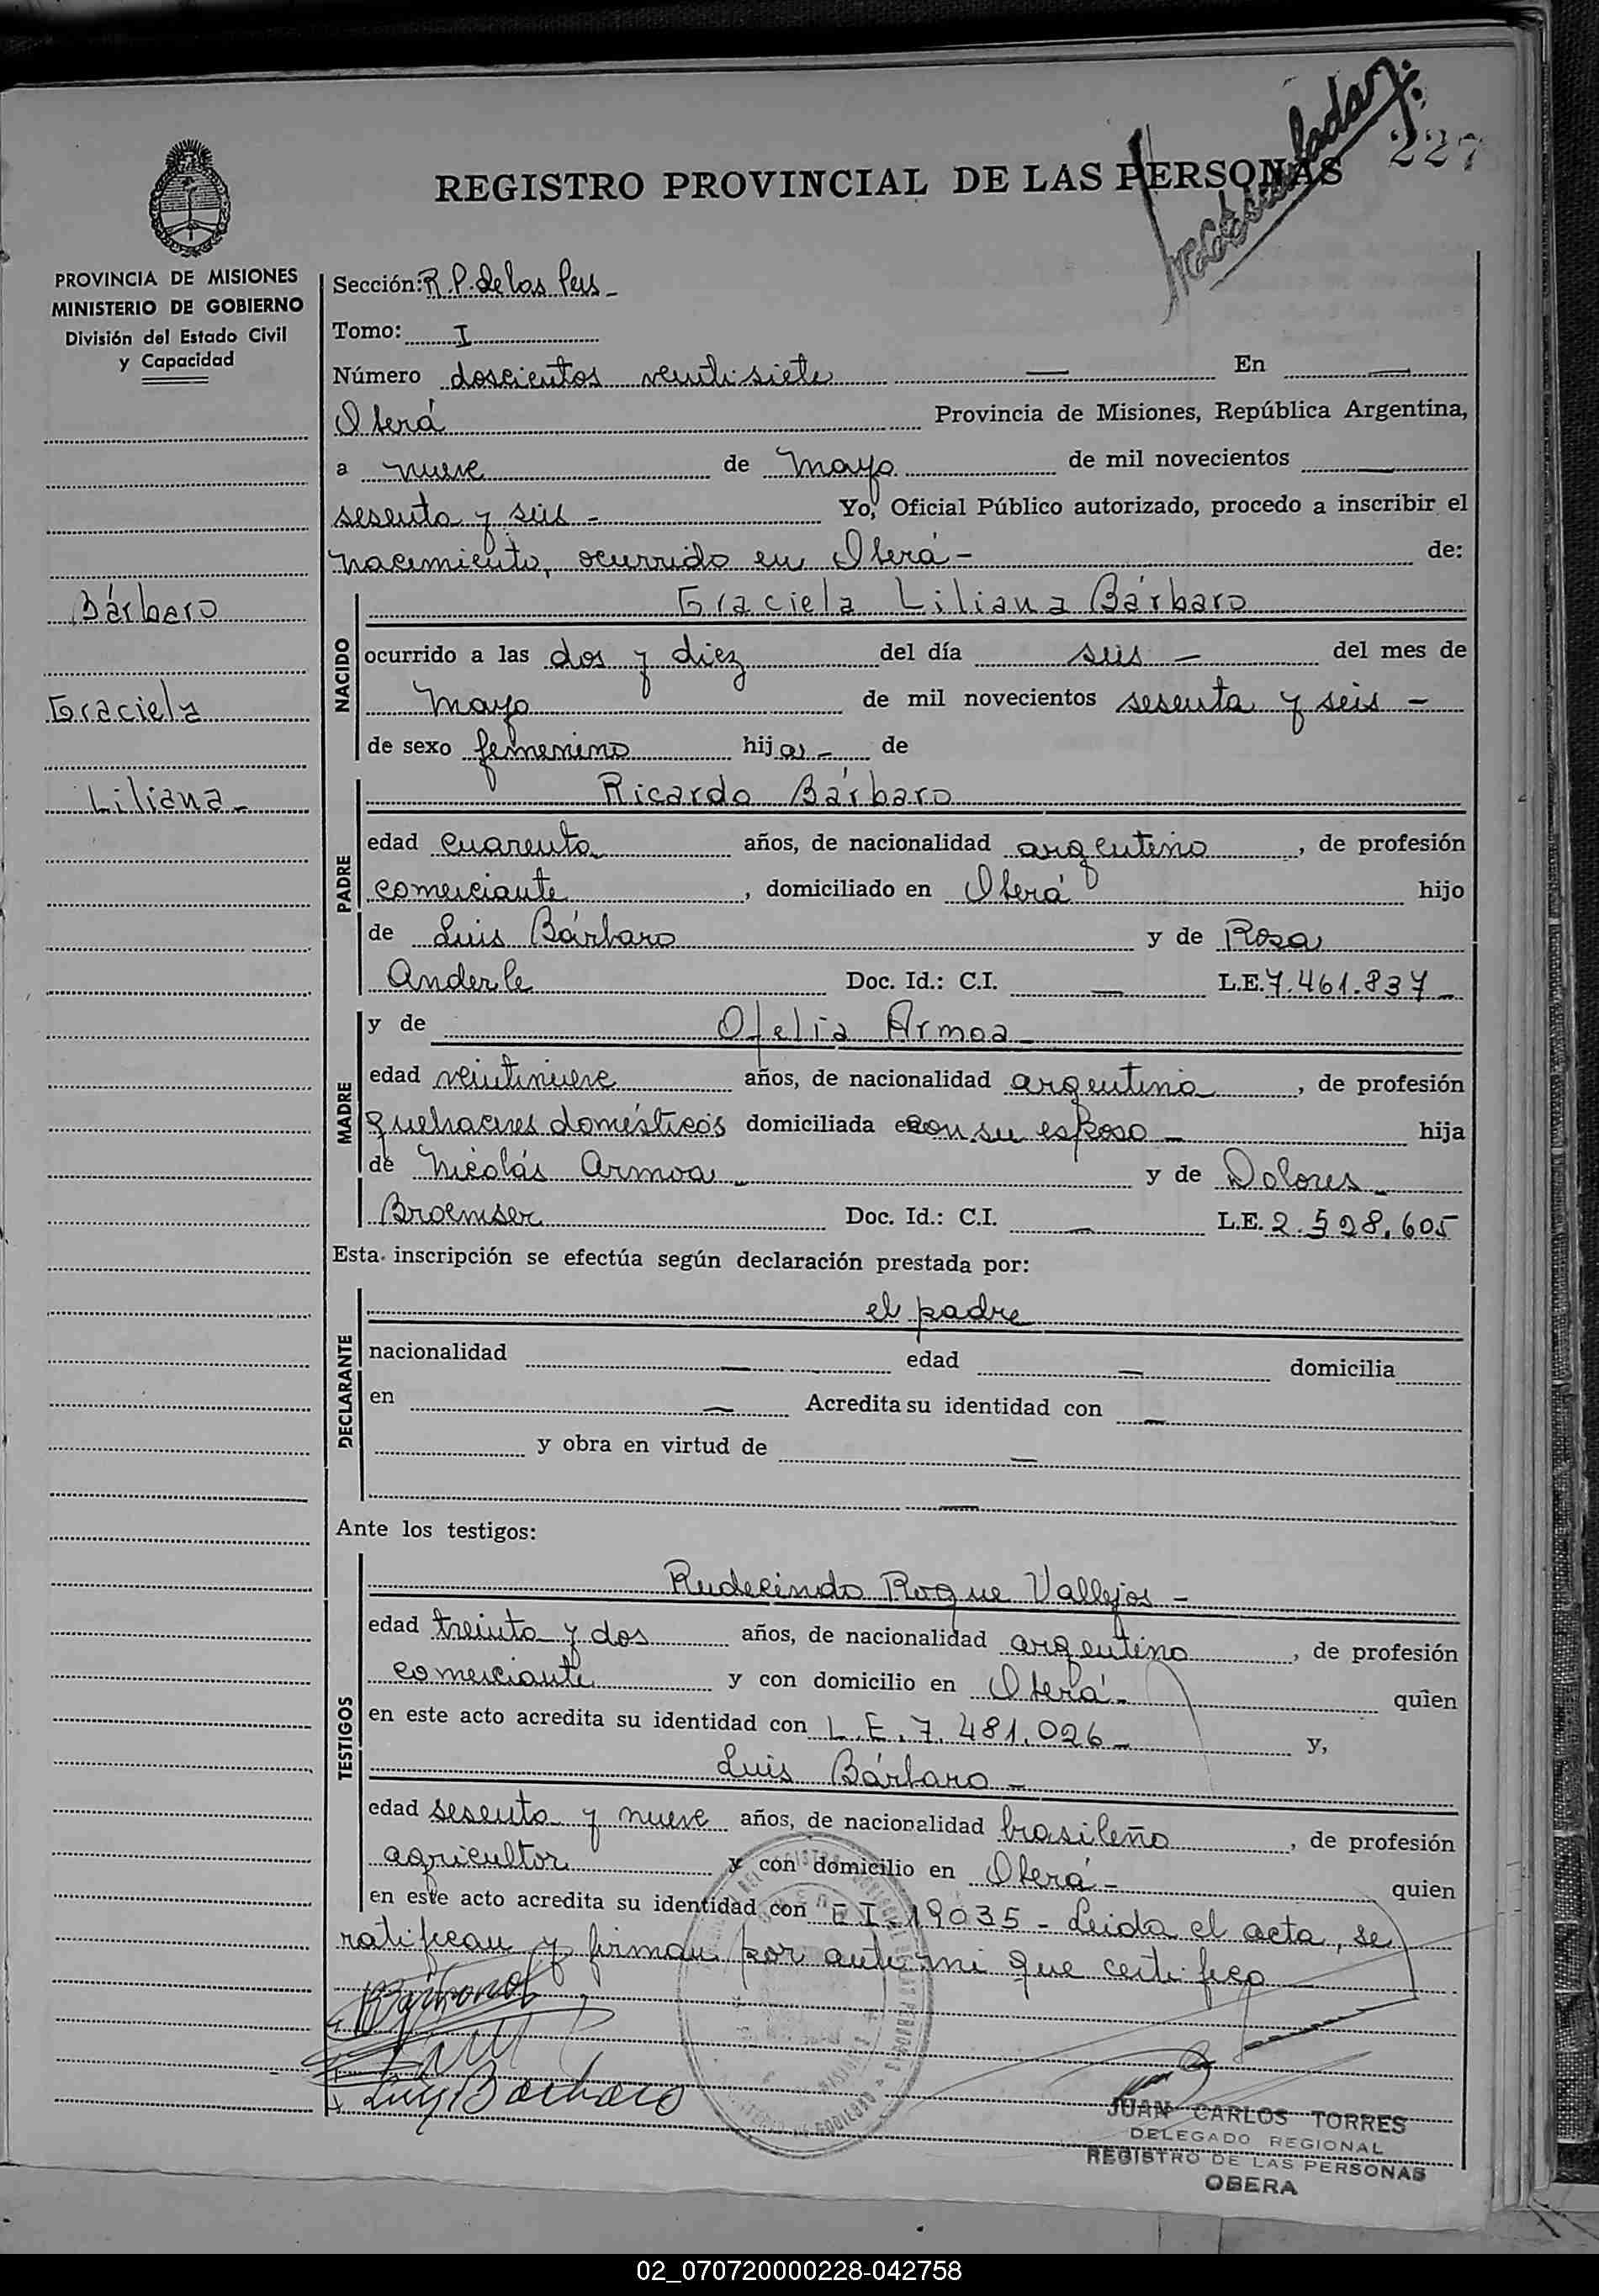 227
REGISTRO PROVINCIAL DE LAS PERSONAS
PROVINCIA DE MISIONES
MINISTERIO DE GOBIERNO
División del Estado Civil
y Capacidad
Sección: R.P. de las Pers -
Tomo: I
Número doscientos veintisiete — En —
Oberá Provincia de Misiones, República Argentina,
a nueve de mayo de mil novecientos —
sesenta y seis - Yo, Oficial Público autorizado, procedo a inscribir el
nacimiento, ocurrido en Oberá - de:
Bárbaro
Graciela
Liliana -
NACIDO
Graciela Liliana Bárbaro
ocurrido a las dos y diez del día seis - del mes de
mayo de mil novecientos sesenta y seis -
de sexo femenino hija - de
PADRE
Ricardo Bárbaro
edad cuarenta años, de nacionalidad argentino, de profesión
comerciante, domiciliado en Oberá hijo
de Luis Bárbaro y de Rosa
Anderle Doc. Id.: C.I. — L.E. 7.461.837 -
MADRE
y de Ofelia Armoa
edad veintinueve años, de nacionalidad argentina, de profesión
quehaceres domésticos domiciliada con su esposo - hija
de Nicolás Armoa - y de Dolores -
Broemser Doc. Id.: C.I. — L.E. 2.528.605
Esta inscripción se efectúa según declaración prestada por:
DECLARANTE
el padre
nacionalidad — edad — domicilia
en — Acredita su identidad con —
y obra en virtud de —
—
Ante los testigos:
TESTIGOS
Rudecindo Roque Vallejos -
edad treinta y dos años, de nacionalidad argentino, de profesión
comerciante y con domicilio en Oberá - quien
en este acto acredita su identidad con L.E. 7.481.026 - y,
Luis Bárbaro -
edad sesenta y nueve años, de nacionalidad brasileño, de profesión
agricultor y con domicilio en Oberá - quien
en este acto acredita su identidad con C I - 19035 - Leida el acta, se
ratifican y firman por ante mi que certifico
RBárbaro
Luis Barbaro
JUAN CARLOS TORRES
DELEGADO REGIONAL
REGISTRO DE LAS PERSONAS
OBERA
02_070720000228-042758